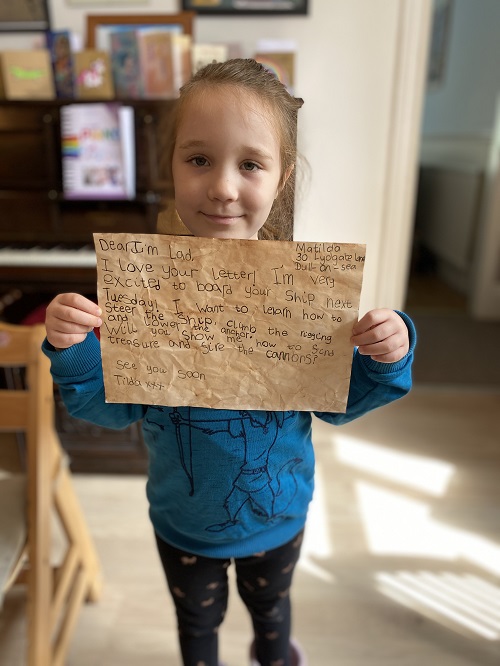 Dear Jim Lad,
Matilda
30
Dull-on-sea
I love your letter! I'm very
excited to board your ship next
Tuesday! I want to learn how to
Steer the ship, climb the rigging
and lower the anchor.
Will you show me how to find
treasure and fire the cannons?
See you soon
Tilda xxx